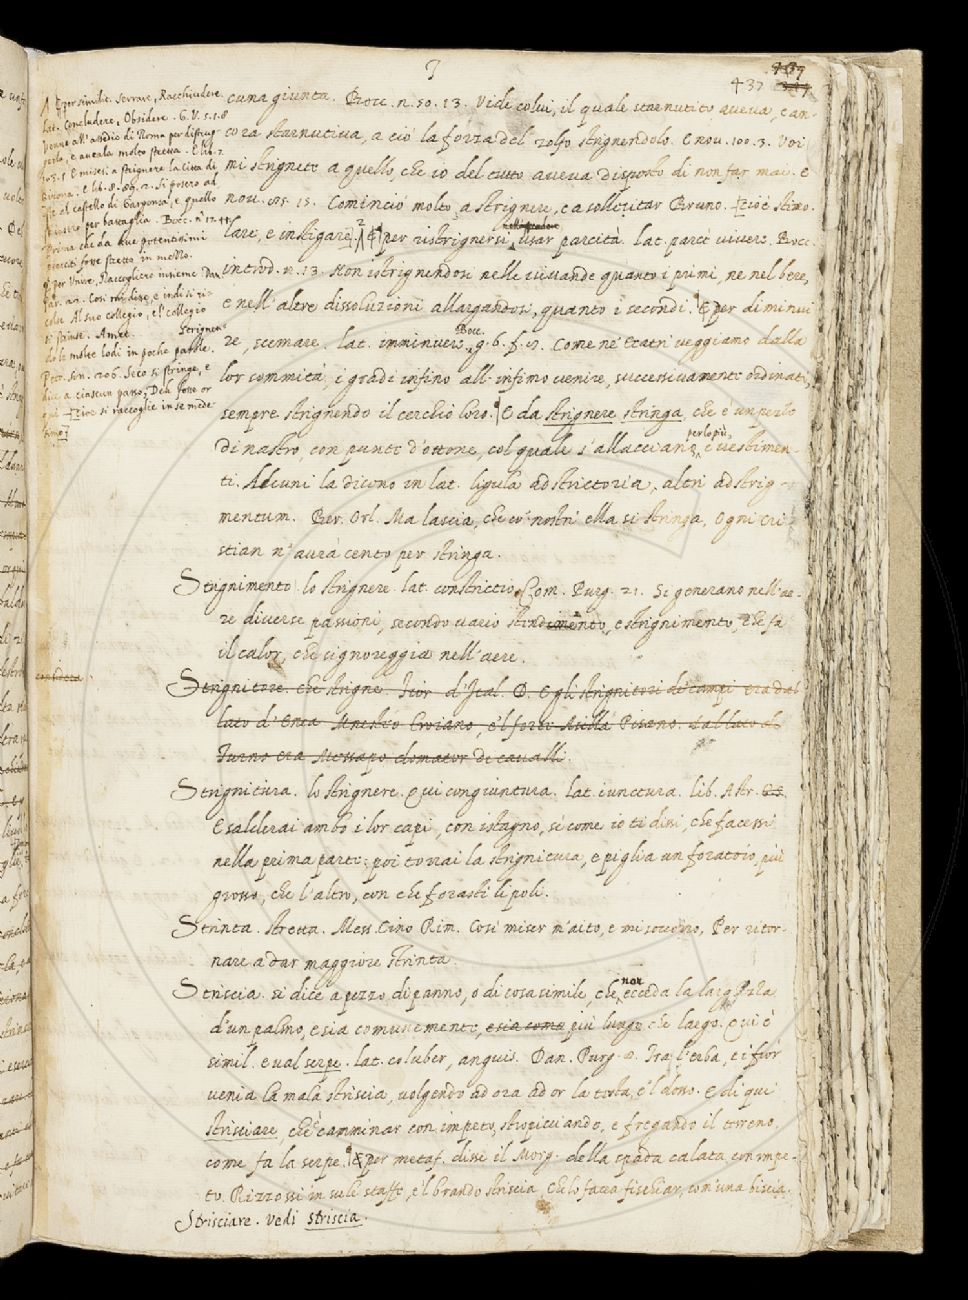 437
cuna giunta. Bocc. n. 50. 13. Vide colui, il quale starnutito aveva, e an-
cora starnutiva, a ciò la forza del zolfo strignendolo. E nov. 100. 3. Voi
mi strignete a quello, che io del tutto aveva disposto di non far mai. E
nov. 15. Cominciò molto a strignere, e a sollicitar Bruno. cioè stimo-
lare, e instigare. E per ristrignersi, usar parcità. lat. parce vivere. Bocc.
introd. n. 13. Non istrignendosi nelle vivande quanto i primi, ne nel bere,
e nell'altre dissoluzioni allargandosi, quanto i secondi. E per diminui
re, scemare. lat. imminuere. Bocc. g. 6. f. 9. Come ne' teatri veggiamo dalla
lor sommità, i gradi infino all'infimo venire, successivamente ordinati,
sempre strignendo il cerchio loro. E da strignere stringa, che è un pezzo
di nastro, con punte d'ottone, col quale s'allacciano, perlopiù, i vestimen-
ti. Alcuni la dicono in lat. ligula adstrictoria, altri adstrig-
mentum. Ber. Orl. Ma lascia, che co' nostri ella si stringa, Ogni Cri
stian n'aurà cento per stringa.
Strignimento. lo strignere. lat. constrictio. Com. Purg. 21. Si generano nell'ae-
re diverse passioni, secondo vario, e strignimento, che fa
il calor, che signoreggia nell'aere.
Strignitore. che strigne. Fior. d'Ital. D. E gli strignitori de' campi era dal
lato d'Enea Troiano, e'l forte Pisano. dal lato di
Turno era Messapo domator di cavalli.
Strignitura. lo strignere. e qui congiuntura. lat. iunctura. lib. Astr.
E salderai ambo i lor capi, con istagno, sì come io ti dissi, che facessi
nella prima parte: poi torrai la strignitura, e piglia un foratoio, più
grosso, che l'altro, con che forasti li poli.
Strinta. stretta. Mess. Cino Rim. Così miser m'aito, e mi soccorro, Per ritor-
nare a dar maggiore strinta.
Striscia. si dice a pezzo di panno, o di cosa simile, che non ecceda la larghezza
d'un palmo, e sia comunemente, e sia come più lungo che largo. e qui è
simil. e val serpe. lat. coluber, anguis. Dan. Purg. 8. Tra l'erba, e i fior
venia la mala striscia, volgendo ad ora ad or la testa, e'l dosso. E di qui
strisciare, che è camminar con impeto, stropicciando, e fregando il terreno,
come fa la serpe. E per metaf. disse il Morg. della spada calata con impe-
to. Rizzossi in sulle staffe, e'l brando striscia, Che lo facea fischiar, com'una biscia.
Strisciare. vedi striscia.
E per similit. Serrare, Racchiudere.
lat. Concludere, Obsidere. G. V. 5. 1. 8
Venne all'assedio di Roma per distrug-
gerla, e aveala molto stretta. E lib. 7.
103. 1. E misesi a strignere la città di
Girona: e lib. 8. 86. 2. Si posero ad
oste al castello di Gargonsa, e quello
strinsero per battaglia. Bocc. n.
Prima che da due potentissimi
eserciti fosse stretto in mezzo.
E per Unire, Raccogliere insieme. Dan.
Par. 22. Così mi disse, e indi si ri-
colse Al suo collegio, e'l collegio
si strinse. Amet. Strignen-
do le molte lodi in poche parole.
Petr. son. 206. Seco si stringe, e
dice a ciascun passo, Deh fosse or
quì. cioè si raccoglie in se mede-
simo